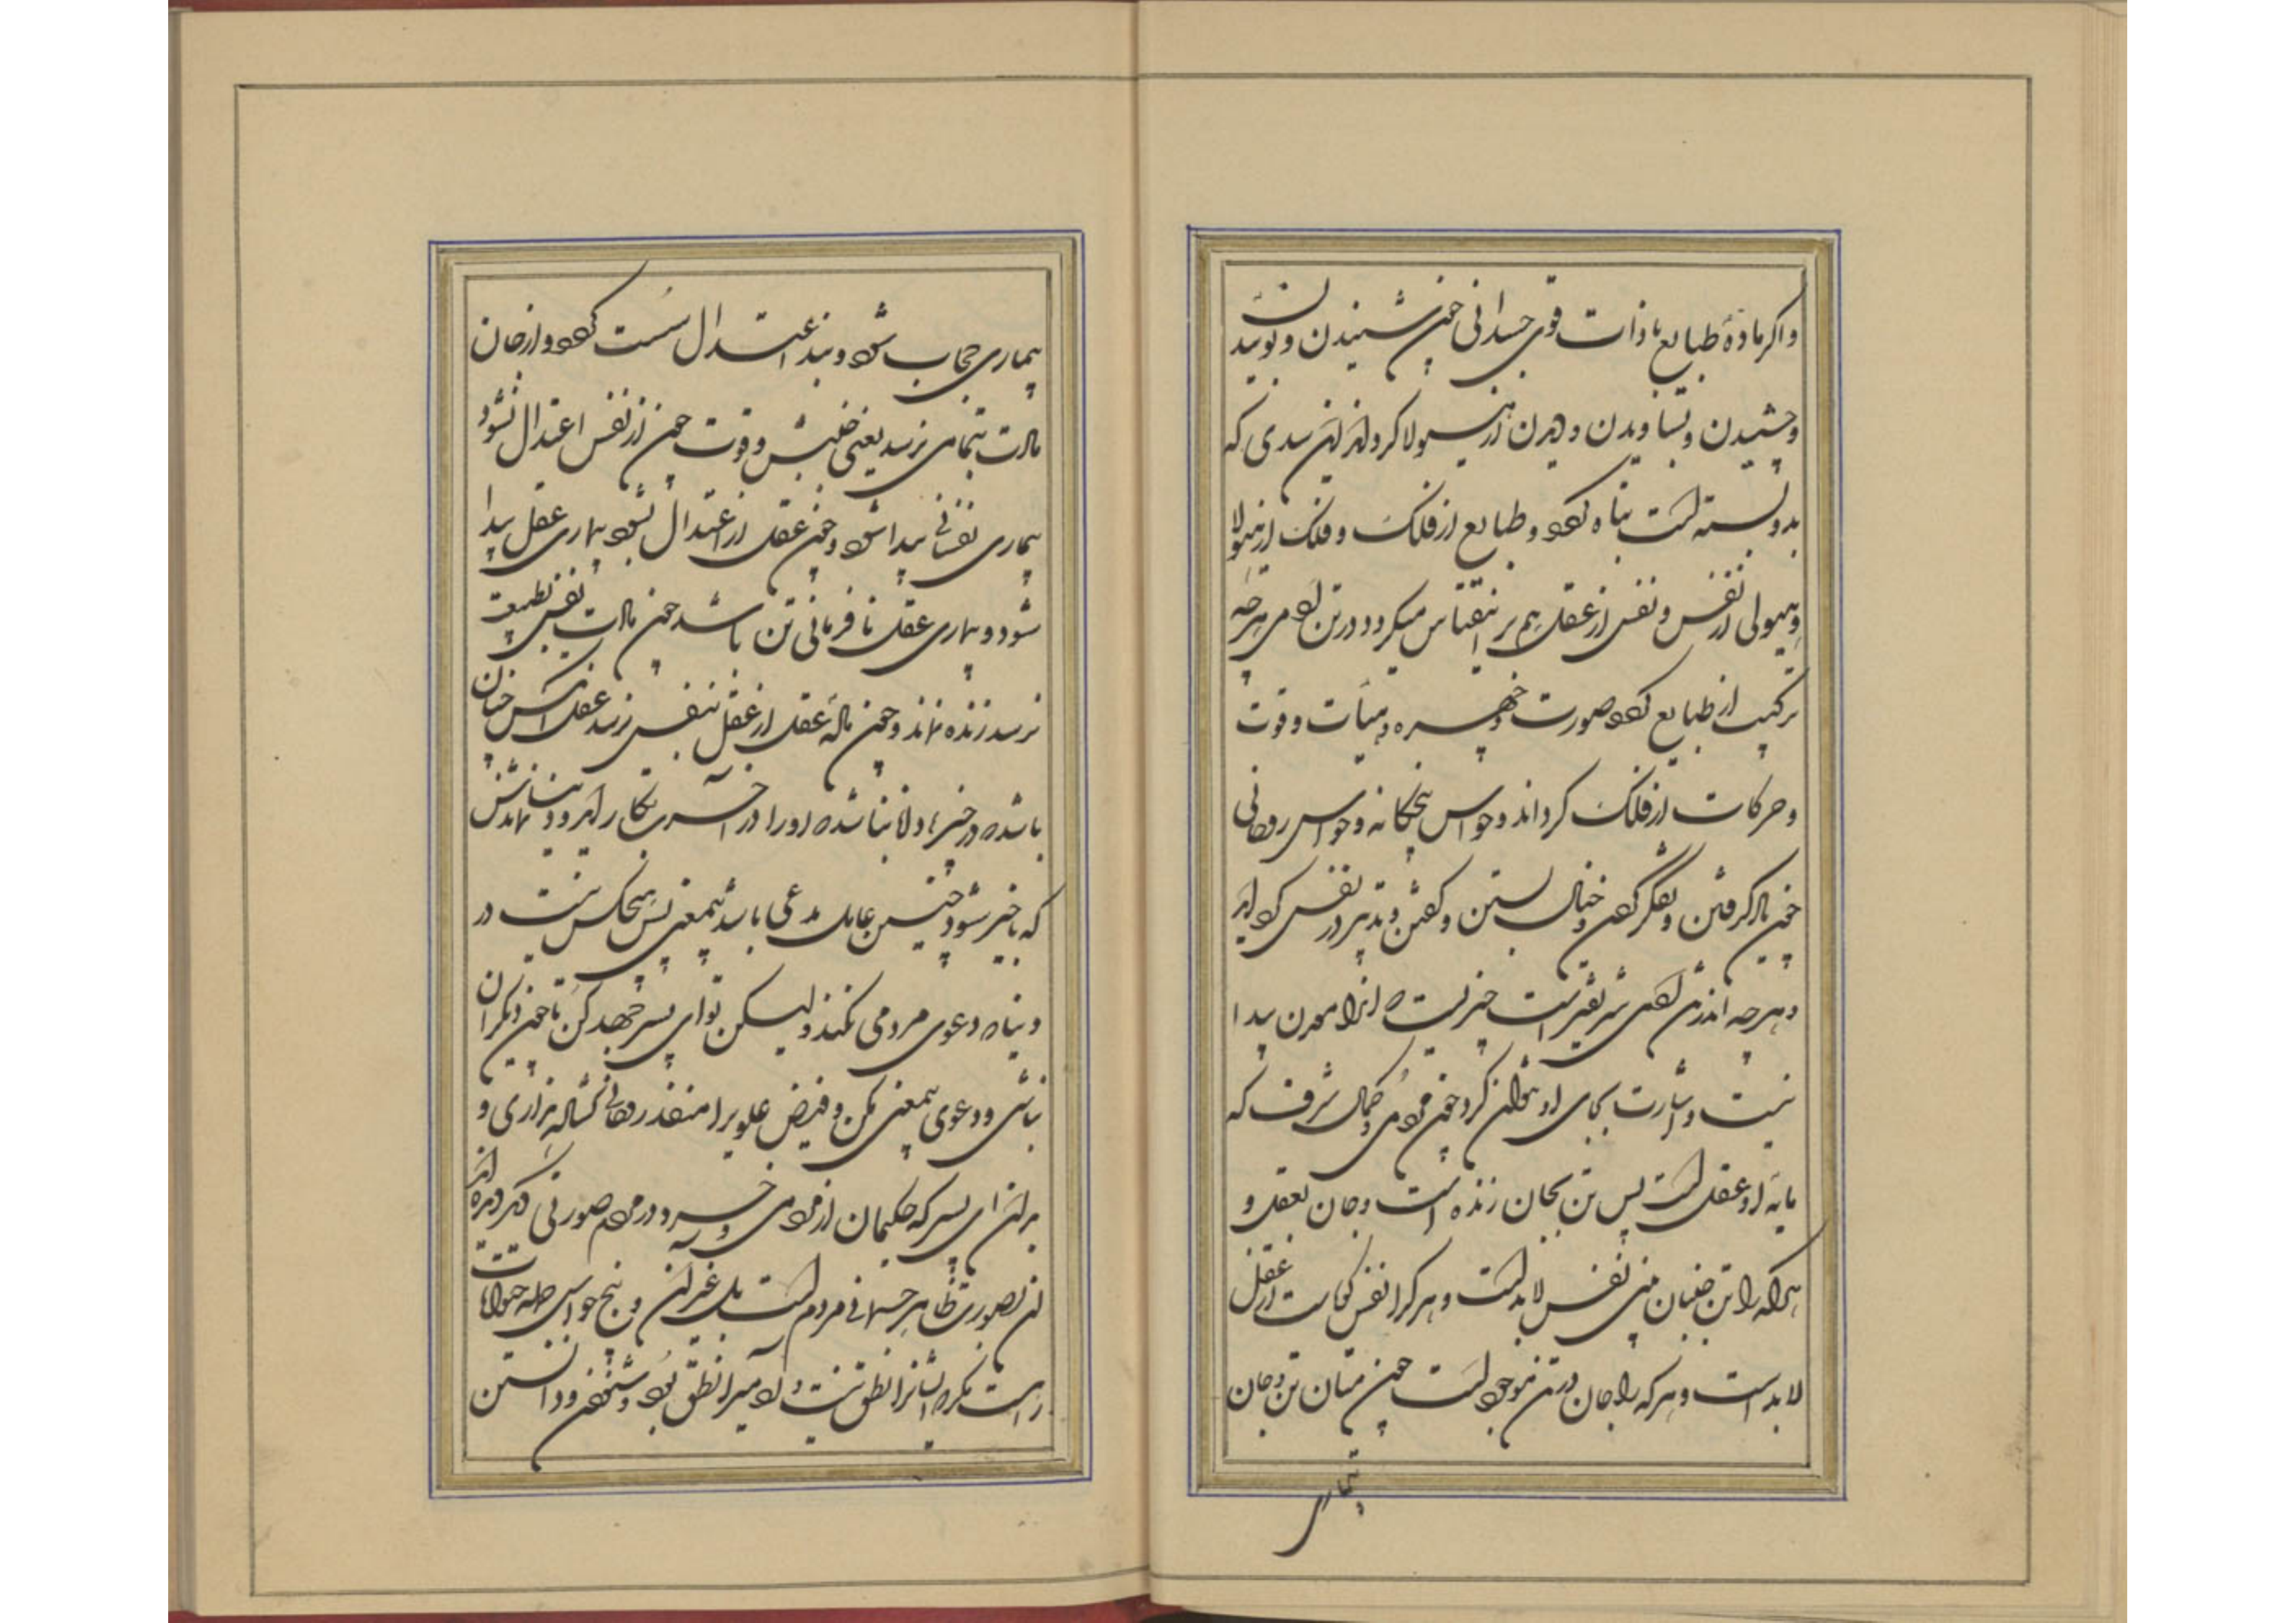 واکر مادهٔ طبایع با ذات قوی جسدانی چون شنیدن و بوئیدن
و چشیدن و بساویدن و دیدن از هیولا کرد این سدی که
بدو بسته است تباه بود و طبایع از فلک و فلک از هیولا
و هیولی از نفس و نفس از عقل هم بر اقتباس میکرد و در تن آدمی هرچه
ترکیب از طبایع بود صورت و چهره و هیأت و قوت
و حرکات از فلک کرد اند و حواس پنجکانه و حواس روحانی
چون یاد کرفتن و تفکر کردن و خیال بستن و کفتن و تدبیر در نفس
و هرچه اندر تن آدمی شریفتر است چیزیست که انرا معدن پیدا
نیست و اشارت بجای او نتوان کرد چون مردمی و کمال شرف که
مایه او عقل است پس تن بجان زنده است و جان بعقل و
هرکه را تن جنبان بینی نفس لابد است و هر کرا نفس از عقل
لا بد است و هرکه را جان در تن موجود است چون میان تن و جان
بیماری
بیماری حجاب شود و بند اعتدال سست کردد و از جان
مادت بتمامی نرسد یعنی جنبش و قوت چون از نفس اعتدال نشود
بیماری نفسانی پیدا شود و چون عقل از اعتدال بشود بیماری عقل پیدا
شود و بیماری عقل نافرمانی تن باشد چون مادت نفس بطبیعت
نرسد زنده نماند و چون مادهٔ عقل از عقل بنفس نرسد عقل آنکس چنان
باشد و خیر او را در آخر بکار آید و
که با خبر شود چنین عاقل مدعی باشد بیمعنی پس هیچکس نیست در
دنیا که دعوی مردمی نکند ولیکن تو ای پسر جهد کن تا چون دیکران
نباشی و دعوی بیمعنی نکن و فیض علویرا منفذ روحانی کشاده داری و
بدان ای پسر که حکیمان از مردمی و خرد و در مردم صورتی کرده اند
نه تصورت ظاهر جسمانی مردم است بلکه غیر آن و پنج حواس جمله حیوانات
راست مکر که ایشانرا نطق نیست و آدمیرا نطق بود و شنودن و دانستن